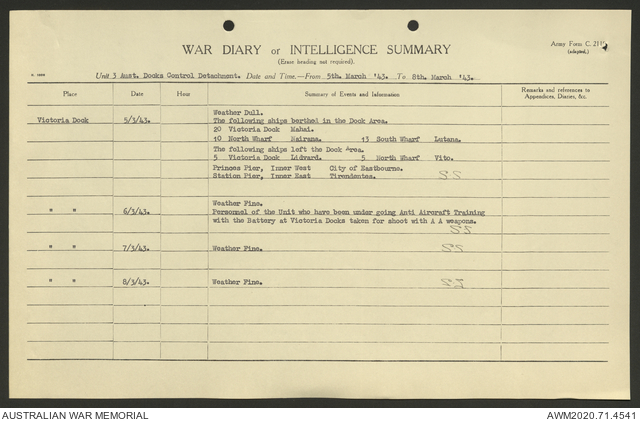 WAR DIARY or INTELLIGENCE SUMMARY
(Erase heading not required).
Army Form C. 211
(adapted.)
Unit 3 Aust. Docks Control Detachment. Date and Time.—From 5th. March '43. To 8th. March '43.
Place Date Hour Summary of Events and Information Remarks and references to Appendices, Diaries, &c.
Victoria Dock 5/3/43. Weather Dull.
The following ships berthed in the Dock Area.
20 Victoria Dock Mahai.
10 North Wharf Nairana. 13 South Wharf Lutana.
The following ships left the Dock Area.
5 Victoria Dock Lidvard. 5 North Wharf Vito.
Princes Pier, Inner West City of Eastbourne.
Station Pier, Inner East Tirendentes. SS
Weather Fine.
" " 6/3/43. Personnel of the Unit who have been under going Anti Aircraft Training
with the Battery at Victoria Docks taken for shoot with A A weapons.
SS
" " 7/3/43. Weather Fine. SS
" " 8/3/43. Weather Fine. SS
AUSTRALIAN WAR MEMORIAL
AWM2020.71.4541